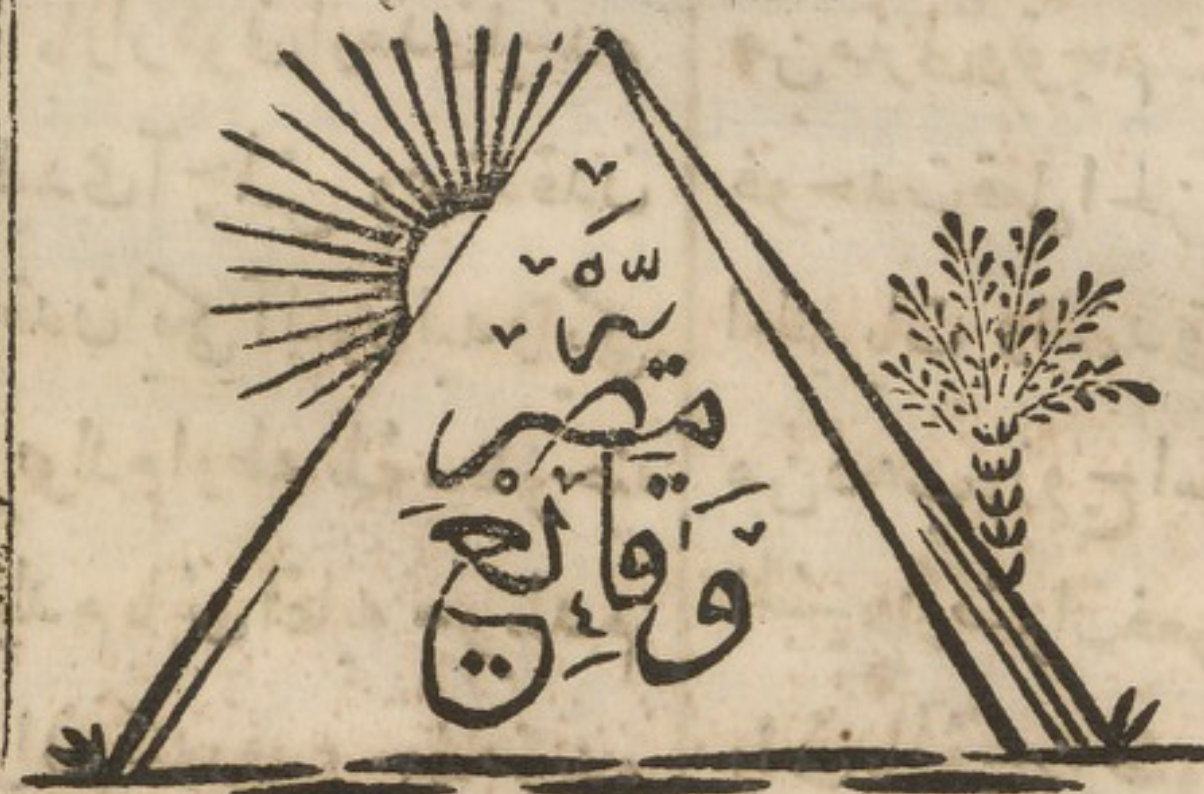 وَقَائِع
مِصْريَّه